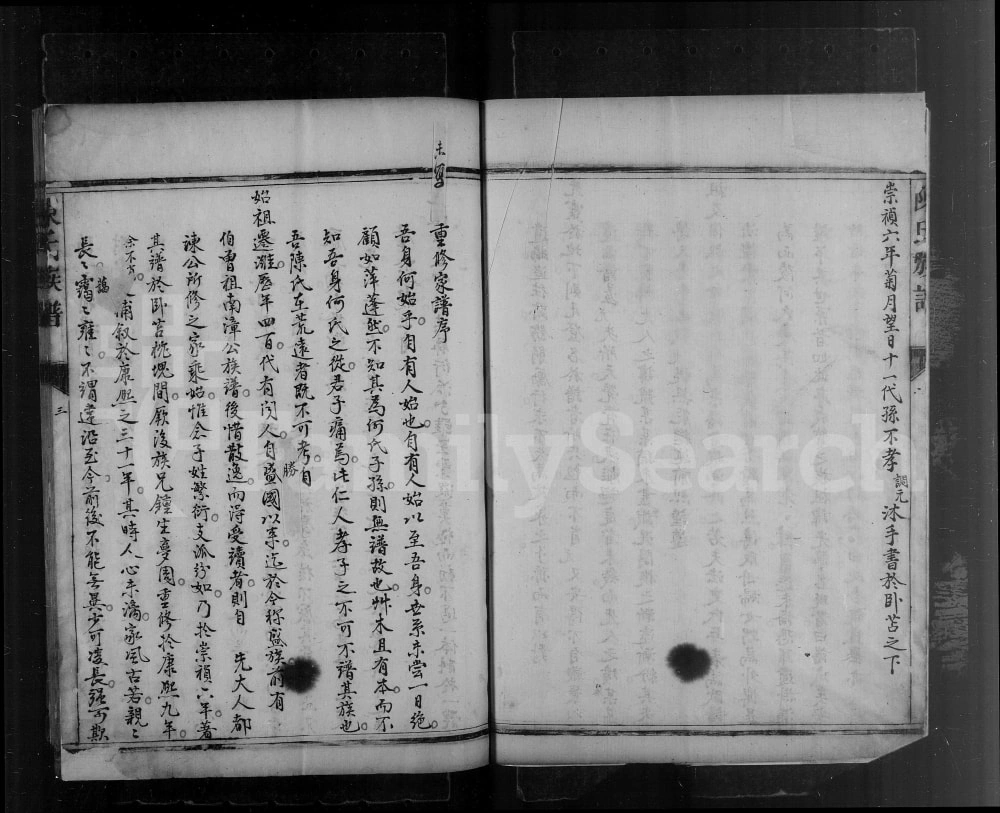 崇禎六年菊月望日十一代孫不孝調元沐手書於卧苫之下
陳氏族譜
重修家譜序
吾身何始乎自有人始也自有人始以至吾身世系未嘗一日絕
顧如萍蓬然不知其為何氏子孫則無譜故也艸木且有本而不
知吾身何氏之從君子痛焉此仁人孝子之不可不譜其族也
吾陳氏在荒遠者既不可考自
始祖遷濰歷年四百代有聞人自勝國以來迄於今称盛族前有
伯曾祖南漳公族譜後惜散逸而得受讀者則自 先大人都
諫公所修之家乘始惟念子姓繁衍支派紛如乃於崇禎六年著
其譜於卧苫枕塊間厥後族兄鍾生夢周重修於康熙九年
余不肖 甫叙於康熙之三十一年其時人心未漓家風古若親〻
長〻藹〻雍〻不謂違沿至今前後不能無異少可凌長强可欺
陳氏族譜
三
FamilySearch